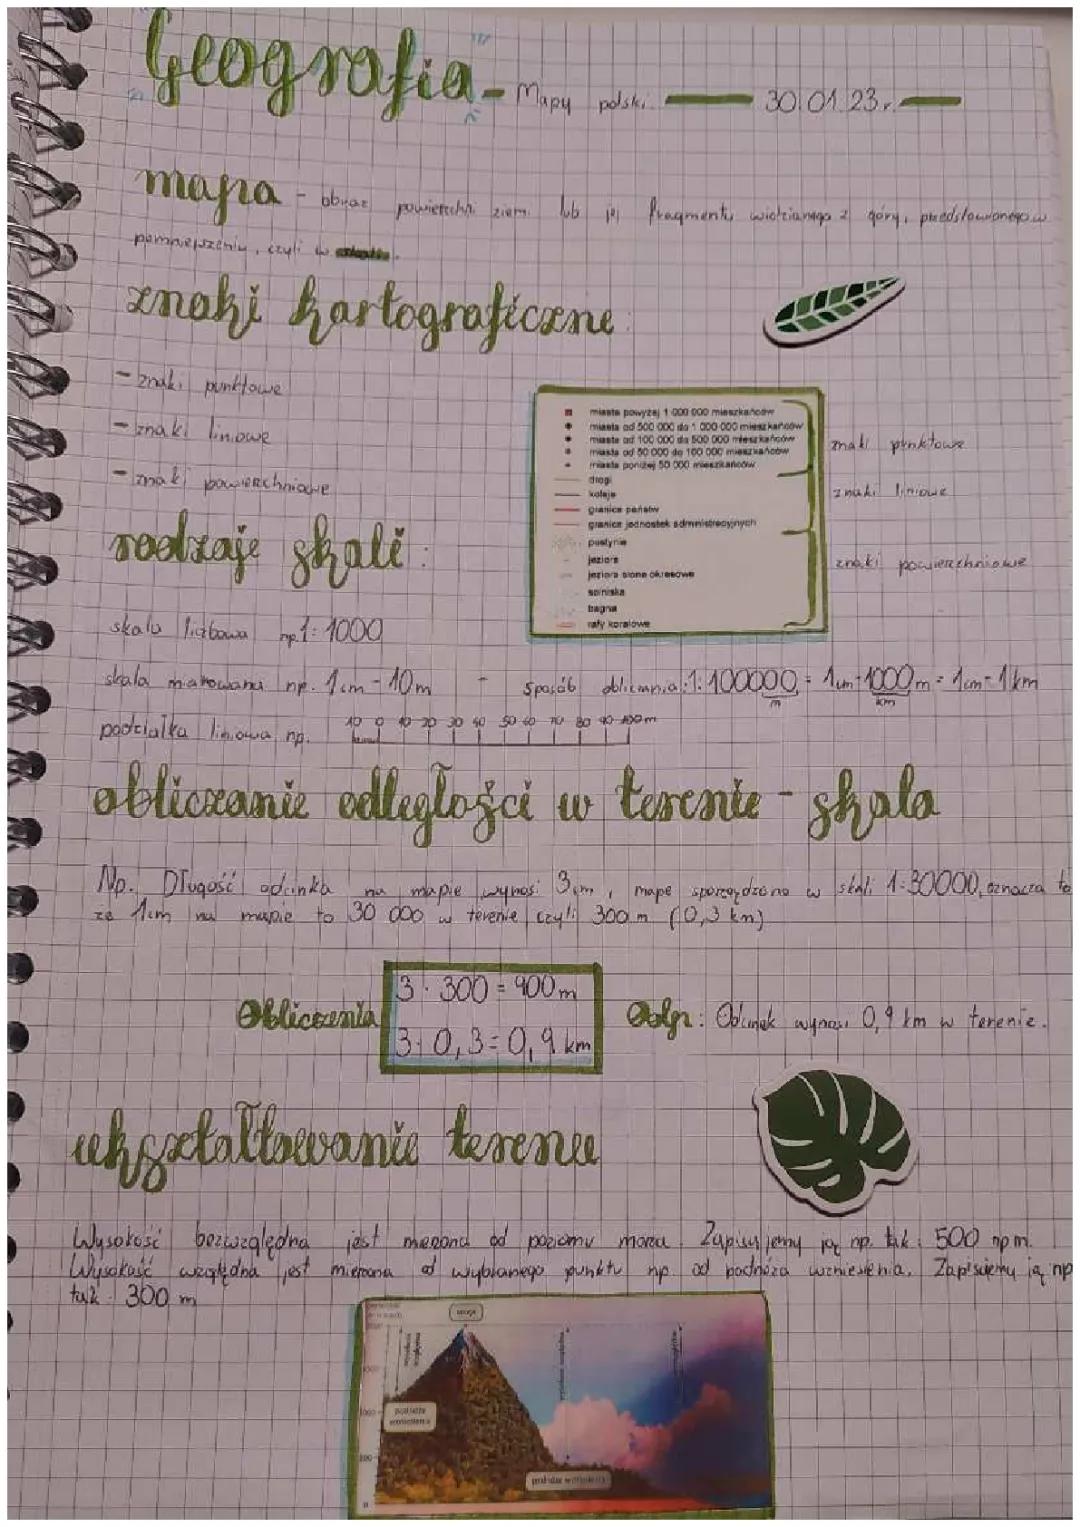 Geografia - Mapy polski. 30.01.23r.
mapa - obraz powierzchni ziemi lub jej fragmentu widzianego z góry, przedstawionego w
pomniejszeniu, czyli w
znaki kartograficzne:
- znaki punktowe
- znaki liniowe
- znaki powierzchniowe
miasta powyżej 1 000 000 mieszkańców
miasta od 500 000 do 1 000 000 mieszkańców
miasta od 100 000 do 500 000 mieszkańców
miasta od 50 000 do 100 000 mieszkańców
miasta poniżej 50 000 mieszkańców
drogi
koleje
granice państw
granice jednostek administracyjnych
pustynie
jeziora
jeziora słone okresowe
solniska
bagna
rafy koralowe
znaki punktowe
znaki liniowe
znaki powierzchniowe
rodzaje skali:
skala liczbowa np. 1:1000
skala mianowana np. 1cm - 10m - sposób obliczania: 1:100000 = 1cm-1000m = 1cm-1km
m km
podziałka liniowa np. 10 0 10 20 30 40 50 60 70 80 90 100m
obliczanie odległości w terenie - skala
Np. Długość odcinka na mapie wynosi 3cm, mapę sporządzono w skali 1:30000, oznacza to
że 1cm na mapie to 30 000 w terenie czyli 300 m (0,3 km)
Obliczenia
3 · 300 = 900m
3 · 0,3 = 0,9 km
Odp: Odcinek wynosi 0,9 km w terenie.
ukształtowanie terenu
Wysokość bezwzględna jest mierzona od poziomu morza. Zapisujemy ją np. tak: 500 npm.
Wysokość względna jest mierzona od wybranego punktu np. od podnóża wzniesienia. Zapisujemy ją np
tak 300 m
1500
1000
500
0
podnóże wzniesienia
podnóże wzniesienia